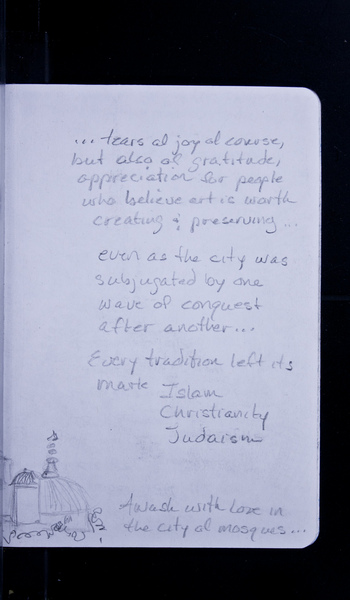 ... tears of joy of course,
but also of gratitude,
appreciation for people
who believe art is worth
creating & preserving...
even as the city was
subjugated by one
wave of conquest
after another...
Every tradition left its
mark Islam
Christianity
Judaism
Awash with love in
the city of mosques...